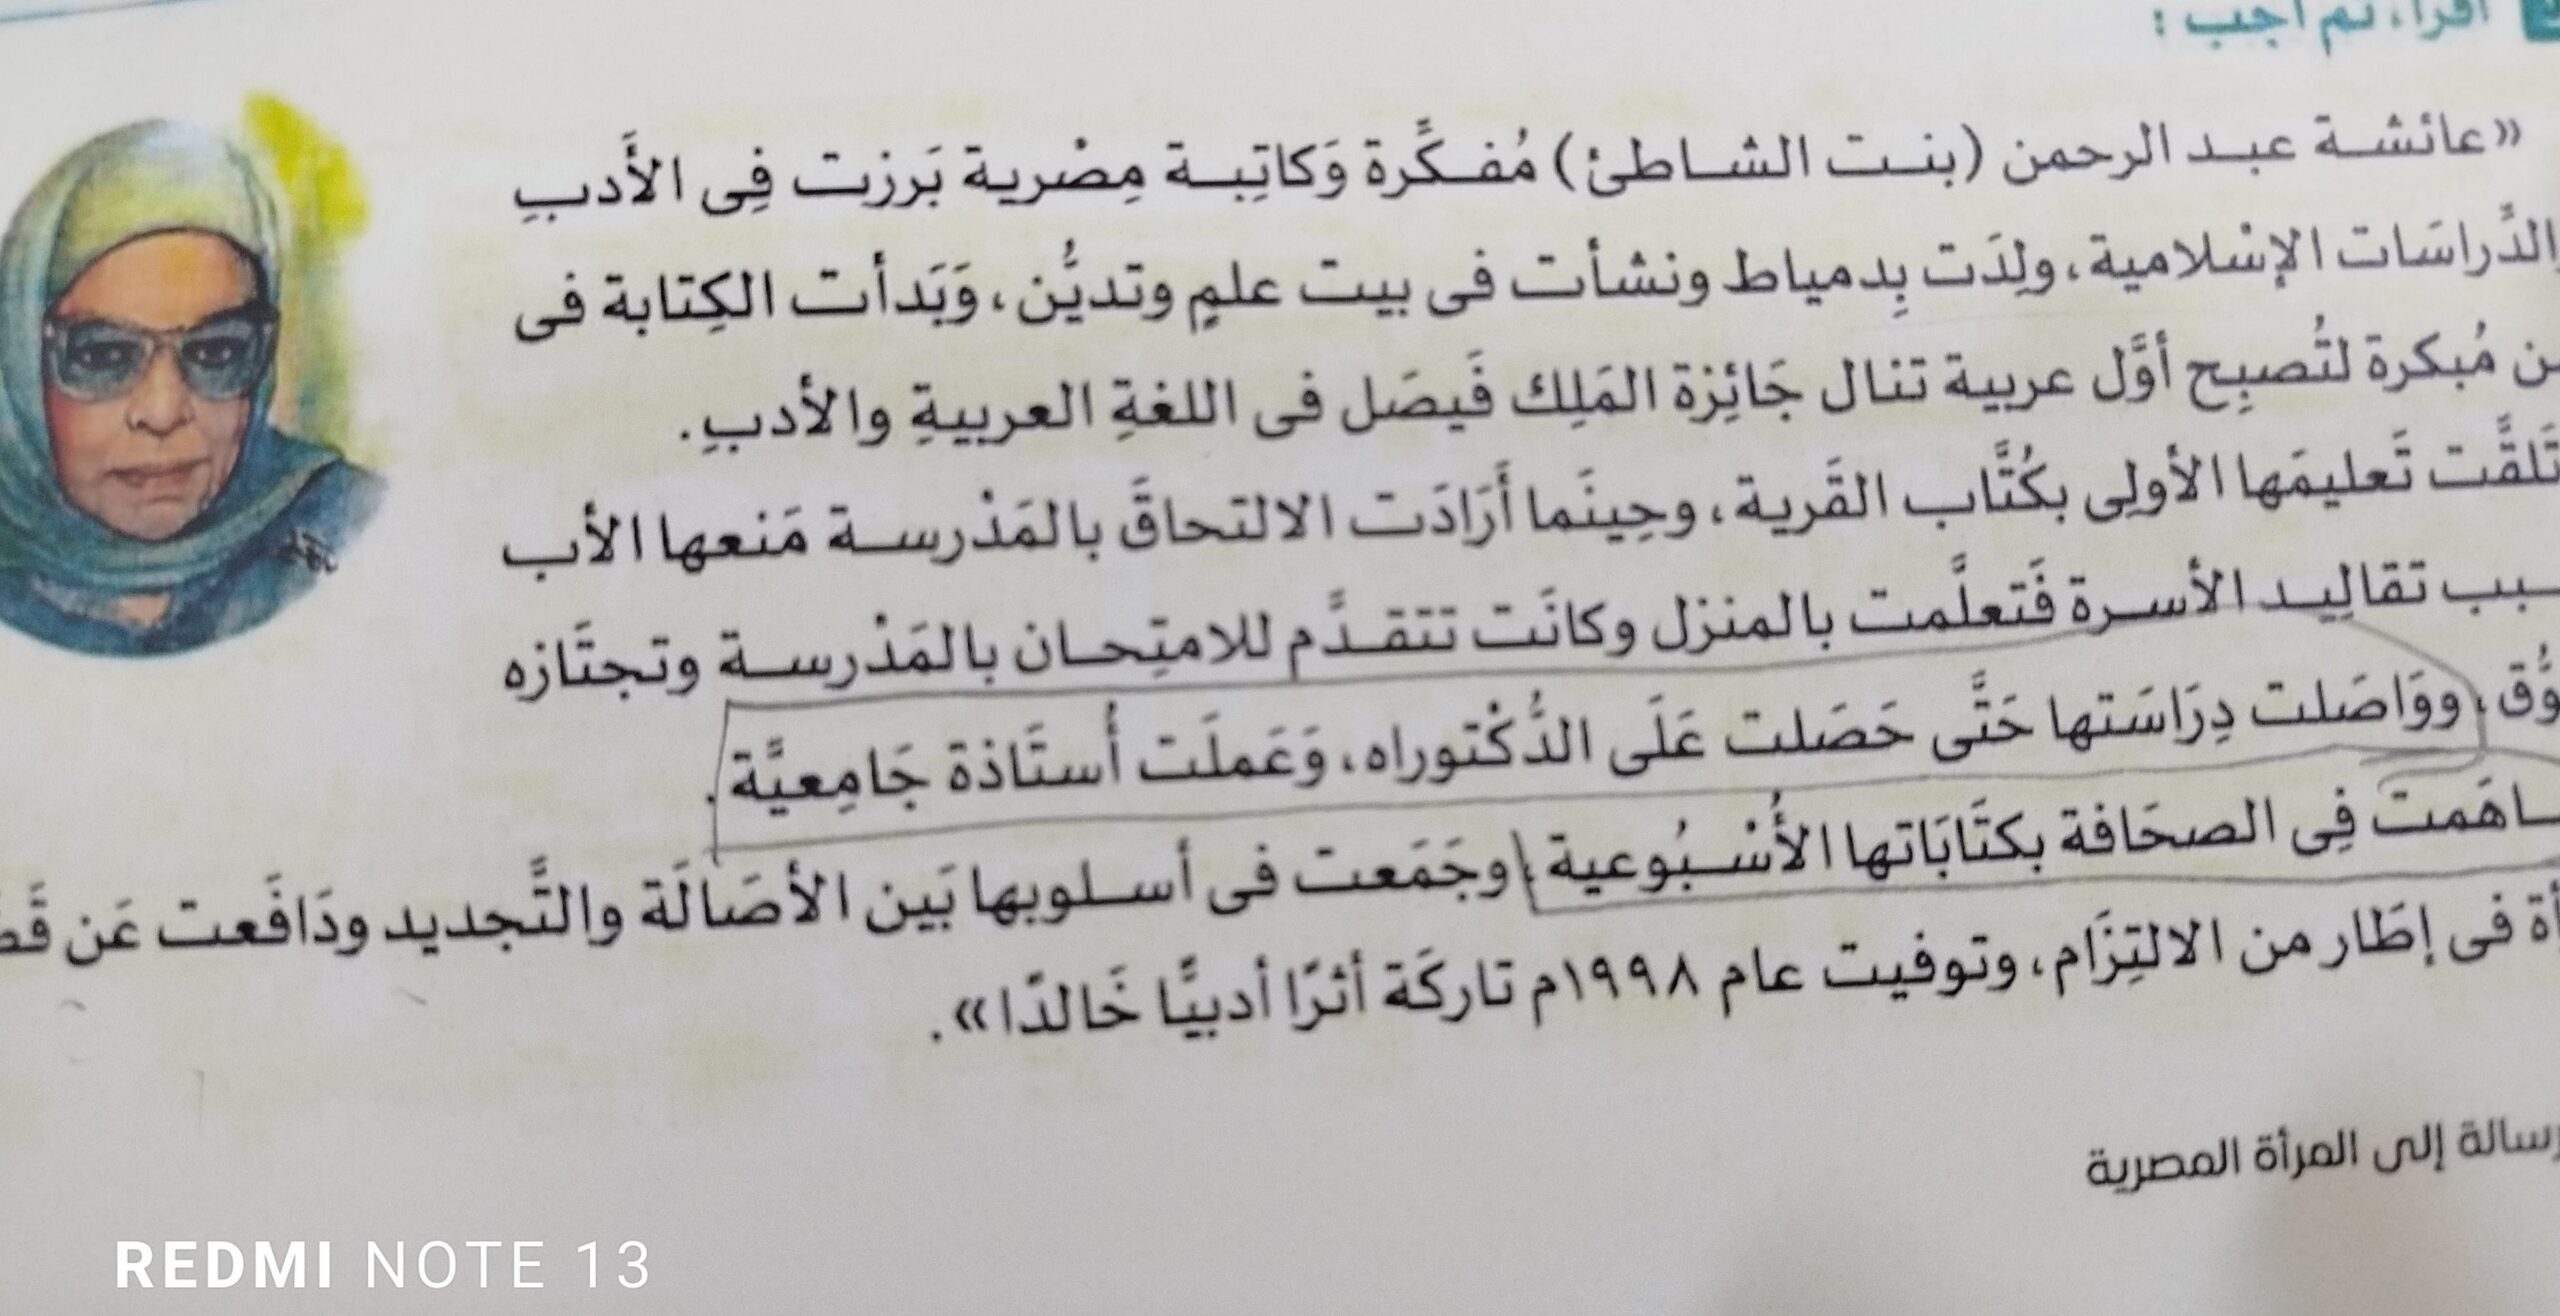 اقرأ، ثم أجب :
«عائشة عبد الرحمن (بنت الشاطئ) مُفكِّرة وَكاتِبة مِصْرية بَرزت فِى الأَدبِ
الدِّراسَات الإسْلامية، ولِدَت بِدمياط ونشأت فى بيت علمٍ وتديُّن، وَبَدأت الكِتابة فى
مُبكرة لتُصبِح أوَّل عربية تنال جَائِزة المَلِك فَيصَل فى اللغةِ العربيةِ والأدبِ.
تَلقَّت تَعليمَها الأولِى بكُتَّاب القَرية، وحِينَما أَرَادَت الالتحاقَ بالمَدْرسة مَنعها الأب
تقالِيد الأسرة فَتعلَّمت بالمنزل وكانَت تتقدَّم للامتِحان بالمَدْرسة وتجتَازه
ووَاصَلت دِرَاسَتها حَتَّى حَصَلت عَلَى الدُّكْتوراه، وَعَملَت أُستَاذة جَامِعيَّة.
فِى الصحَافة بكتَابَاتها الأُسْبُوعية، وجَمَعت فى أسلوبها بَين الأصَالَة والتَّجديد ودَافَعت عَن
فى إطَار من الالتِزَام، وتوفيت عام ١٩٩٨م تاركَة أثرًا أدبيًّا خَالدًا».
رسالة إلى المرأة المصرية
REDMI NOTE 13